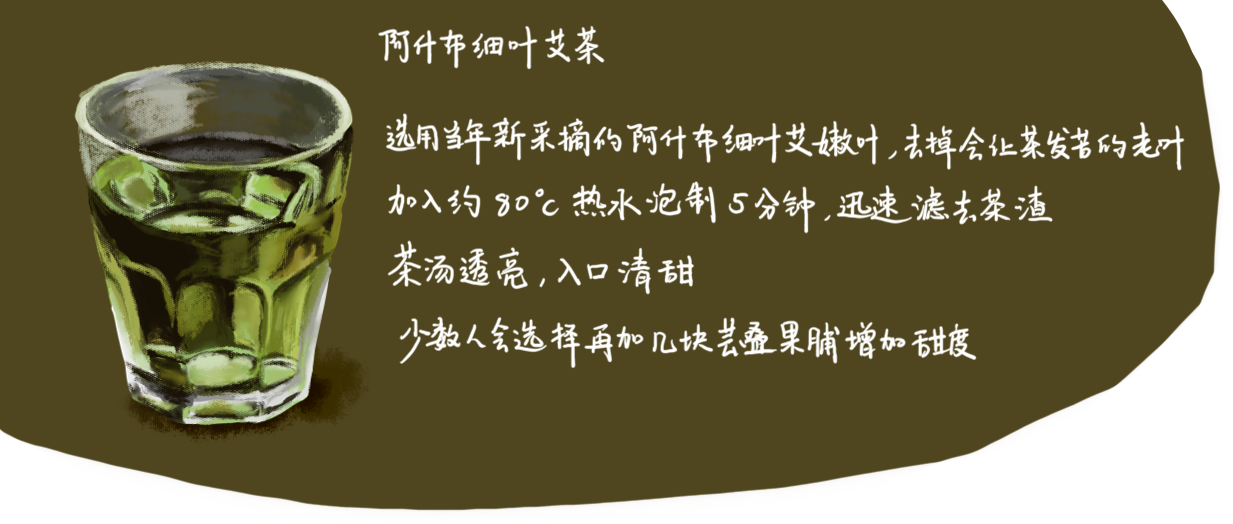 阿什布细叶艾茶
选用当年新采摘的阿什布细叶艾嫩叶,去掉会让茶发苦的老叶
加入约80℃热水泡制5分钟,迅速滤去茶渣
茶汤透亮,入口清甜
少数人会选择再加几块芸叠果脯增加甜度